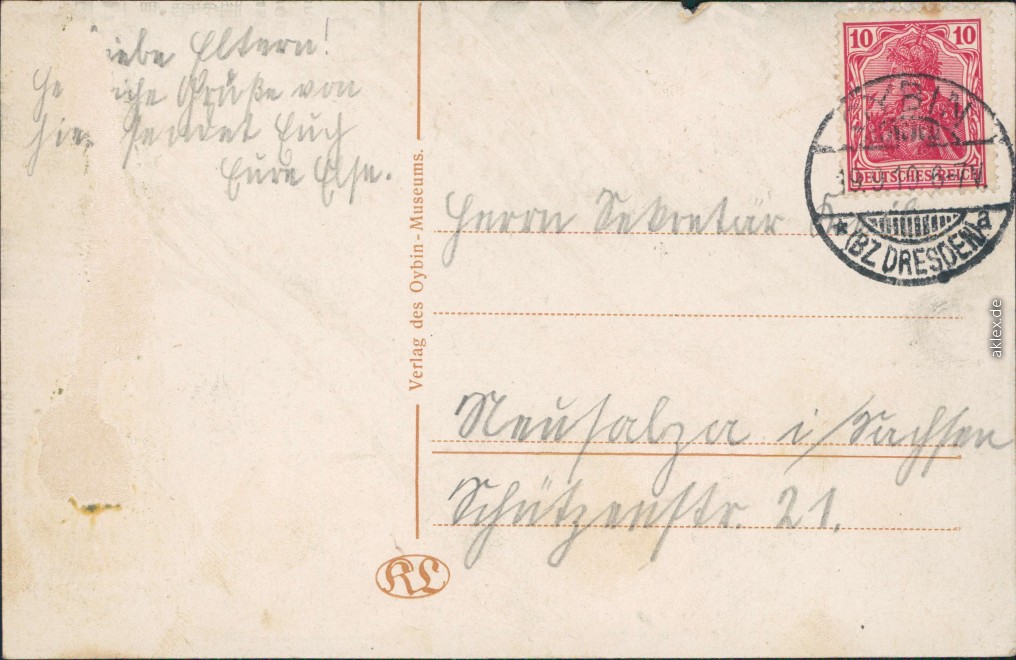 iebe Eltern!
He iche Grüße von
hier sendet Euch
Eure Else.
Verlag des Oybin-Museums.
Herrn Sekretär
Neusalza i/Sachsen
Schützenstr. 21.
10 10
DEUTSCHES REICH
OYBIN
(BZ DRESDEN) a
KL
aklex.de